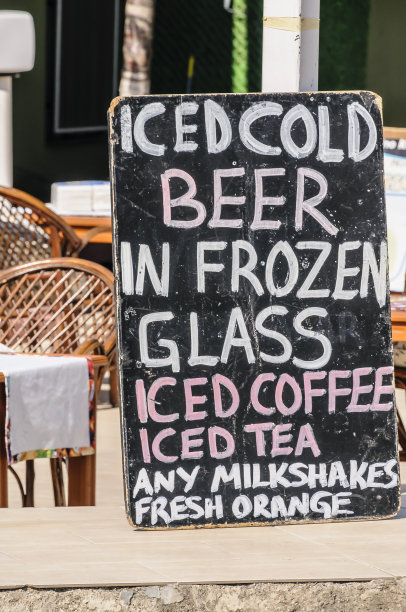 ICED COLD
BEER
IN FROZEN
GLASS
ICED COFFEE
ICED TEA
ANY MILKSHAKES
FRESH ORANGE